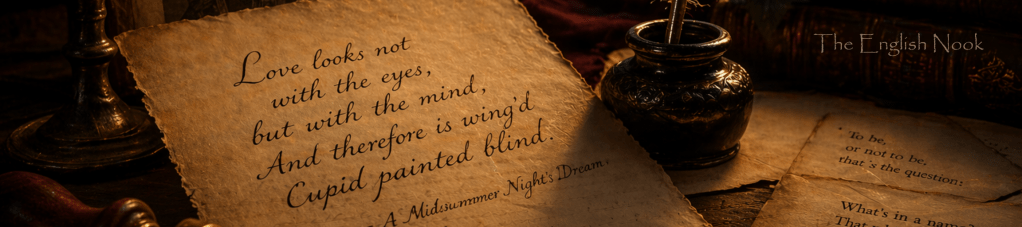 Love looks not
with the eyes,
but with the mind,
And therefore is wing'd
Cupid painted blind.
A Midsummer Night's Dream
The English Nook
To be,
or not to be,
that's the question:
What's in a name?
That